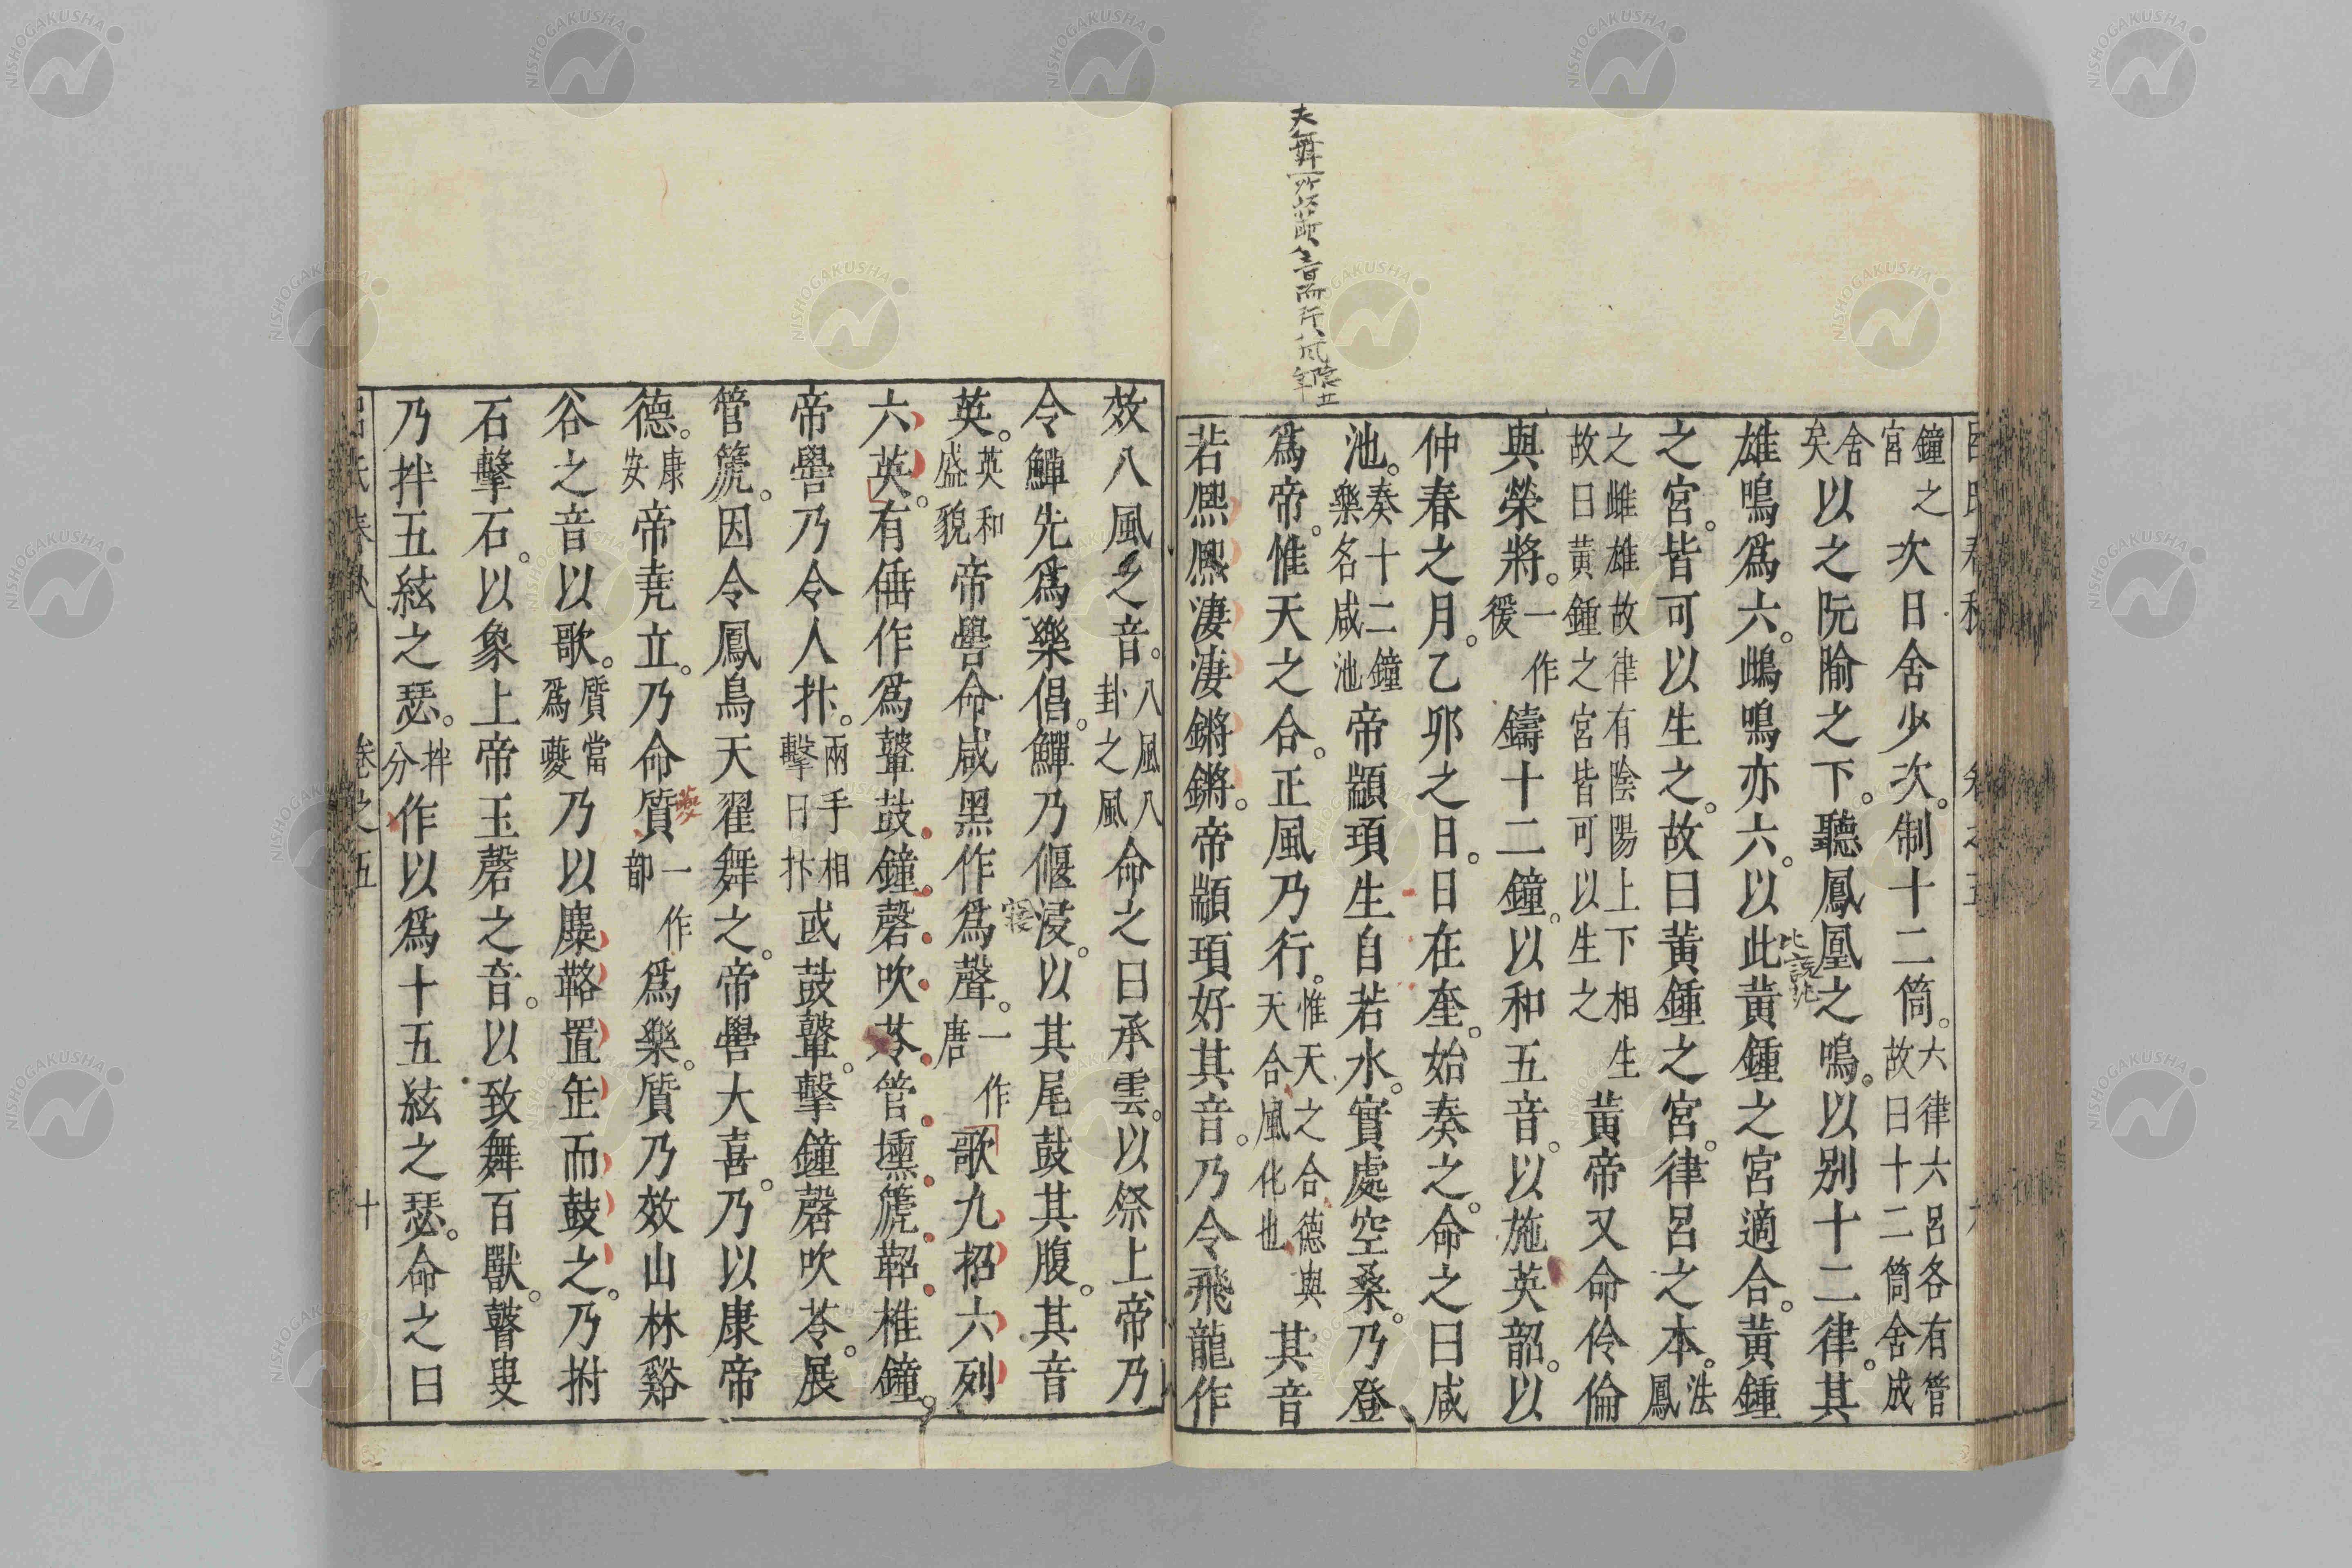 鐘之宮次日舍少次。制十二筒。六律六呂各有管故曰十二筒舍成
舍矣以之阮隃之下。聽鳳凰之鳴。以別十二律。其
雄鳴爲六。鴟鳴亦六。以此黃鍾之宮適合。黃鍾
之宮。皆可以生之。故曰黃鍾之宮。律呂之本。法鳳
之雌雄故律有陰陽上下相生故曰黃鍾之宮皆可以生之黃帝又命伶倫
與榮將。一作鑄十二鐘。以和五音。以施英韶。以
仲春之月。乙卯之日。日在奎。始奏之。命之曰咸
池。奏十二鐘樂名咸池帝顓頊生自若水。實處空桑。乃登
爲帝。惟天之合。正風乃行。惟天之合德與天合風化也其音
若熈熈淒淒鏘鏘。帝顓頊好其音。乃令飛龍作
效八風之音。八風八卦之風命之曰承雲。以祭上帝乃
令鱓先爲樂倡。鱓乃偃浸。以其尾鼓其腹。其音
英。英和盛貌帝嚳命咸黑作爲聲。一作唐歌九招六列
六英。有倕作爲鼙鼓鐘磬吹苓管壎箎鞀椎鐘。
帝嚳乃令人抃。兩手相擊曰抃或鼓鼙。擊鐘磬吹苓。展
管箎。因令鳳鳥天翟舞之。帝嚳大喜。乃以康帝
德。康安帝堯立。乃命質一作部爲樂。質乃效山林谿
谷之音以歌。質當爲夔乃以麋䩭置缶而鼓之。乃拊
石擊石。以象上帝玉磬之音。以致舞百獸。瞽叟
乃拌五絃之瑟。拌分作以爲十五絃之瑟。命之曰
呂氏春秋 卷之五 十